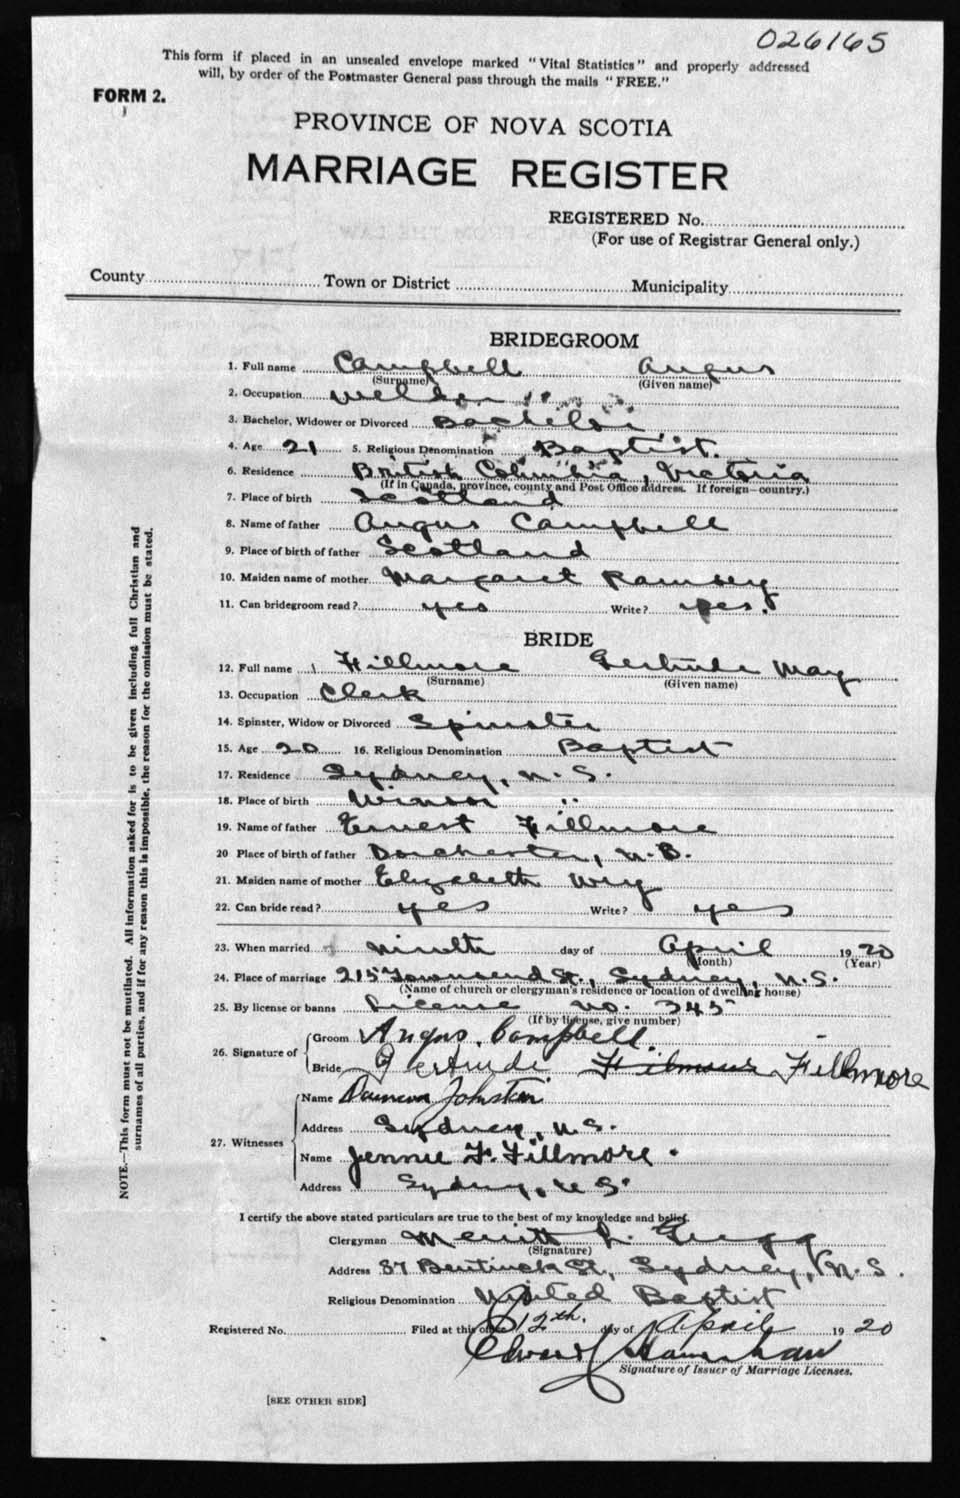 026165
This form if placed in an unsealed envelope marked "Vital Statistics" and properly addressed
will, by order of the Postmaster General pass through the mails "FREE."
FORM 2.
PROVINCE OF NOVA SCOTIA
MARRIAGE REGISTER
REGISTERED No.
(For use of Registrar General only.)
County Town or District Municipality
BRIDEGROOM
1. Full name Campbell Angus
(Surname) (Given name)
2. Occupation
3. Bachelor, Widower or Divorced Bachelor
4. Age 21 5. Religious Denomination Baptist.
6. Residence British Columbia, Victoria
(If in Canada, province, county and Post Office address. If foreign—country.)
7. Place of birth Scotland
8. Name of father Angus Campbell
9. Place of birth of father Scotland
10. Maiden name of mother Margaret Ramsey
11. Can bridegroom read? yes Write? yes.
BRIDE
12. Full name Fillmore Gertrude May
(Surname) (Given name)
13. Occupation Clerk
14. Spinster, Widow or Divorced Spinster
15. Age 20 16. Religious Denomination Baptist
17. Residence Sydney, N.S.
18. Place of birth "
19. Name of father Ernest Fillmore
20 Place of birth of father Dorchester, N.B.
21. Maiden name of mother Elizabeth
22. Can bride read? yes Write? yes
23. When married ninth day of April 1920
(Month) (Year)
24. Place of marriage 215 Townsend St., Sydney, N.S.
(Name of church or clergyman's residence or location of dwelling house)
25. By license or banns License No. 345
(If by license, give number)
26. Signature of Groom Angus Campbell.
Bride Gertrude Fillmore
27. Witnesses Name Johnston
Address Sydney, N.S.
Name Jennie F. Fillmore.
Address Sydney, N.S.
I certify the above stated particulars are true to the best of my knowledge and belief.
Clergyman Gregg
(Signature)
Address 37 Bentinck St., Sydney, N.S.
Religious Denomination United Baptist
Registered No. Filed at this office 12th. day of April 1920
Signature of Issuer of Marriage Licenses.
[SEE OTHER SIDE]
NOTE.—This form must not be mutilated. All information asked for is to be given including full Christian and
surnames of all parties, and if for any reason this is impossible, the reason for the omission must be stated.